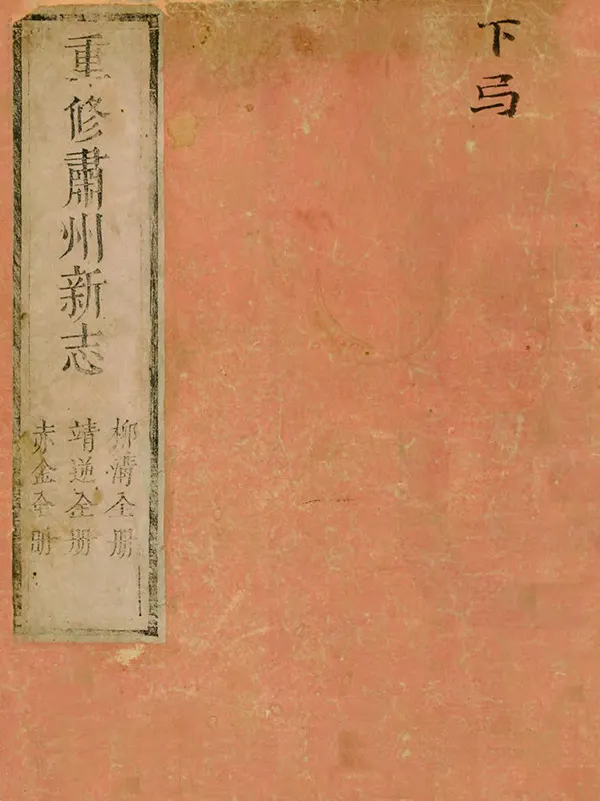 下弓
重修肅州新志
柳溝全册
靖逆全册
赤金全册